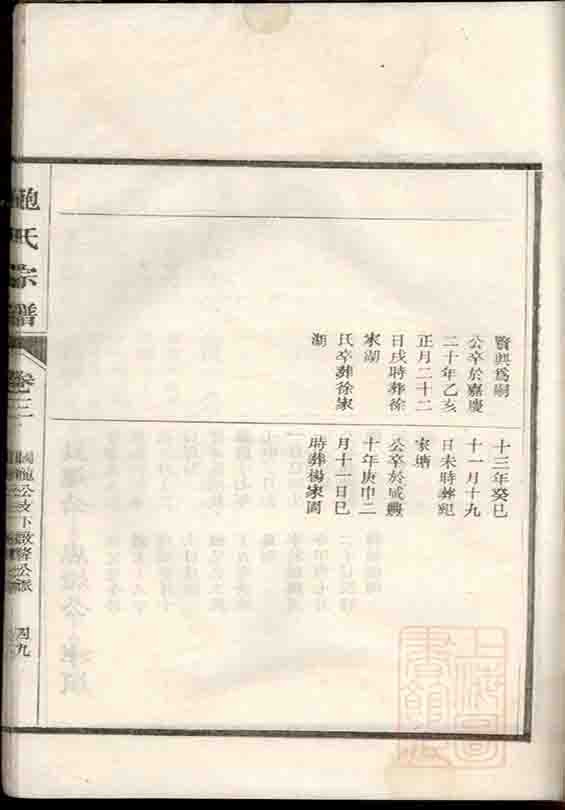 賢興為嗣
公卒於嘉慶
二十年乙亥
正月二十二
日戌時葬徐
家湖
氏卒葬徐家
湖
十三年癸巳
十一月十九
日未時葬紀
家塘
公卒於咸豐
十年庚申二
月十一日巳
時葬楊家岡
鮑氏宗譜
卷三
公支下啟公派
四九
上海圖書館藏